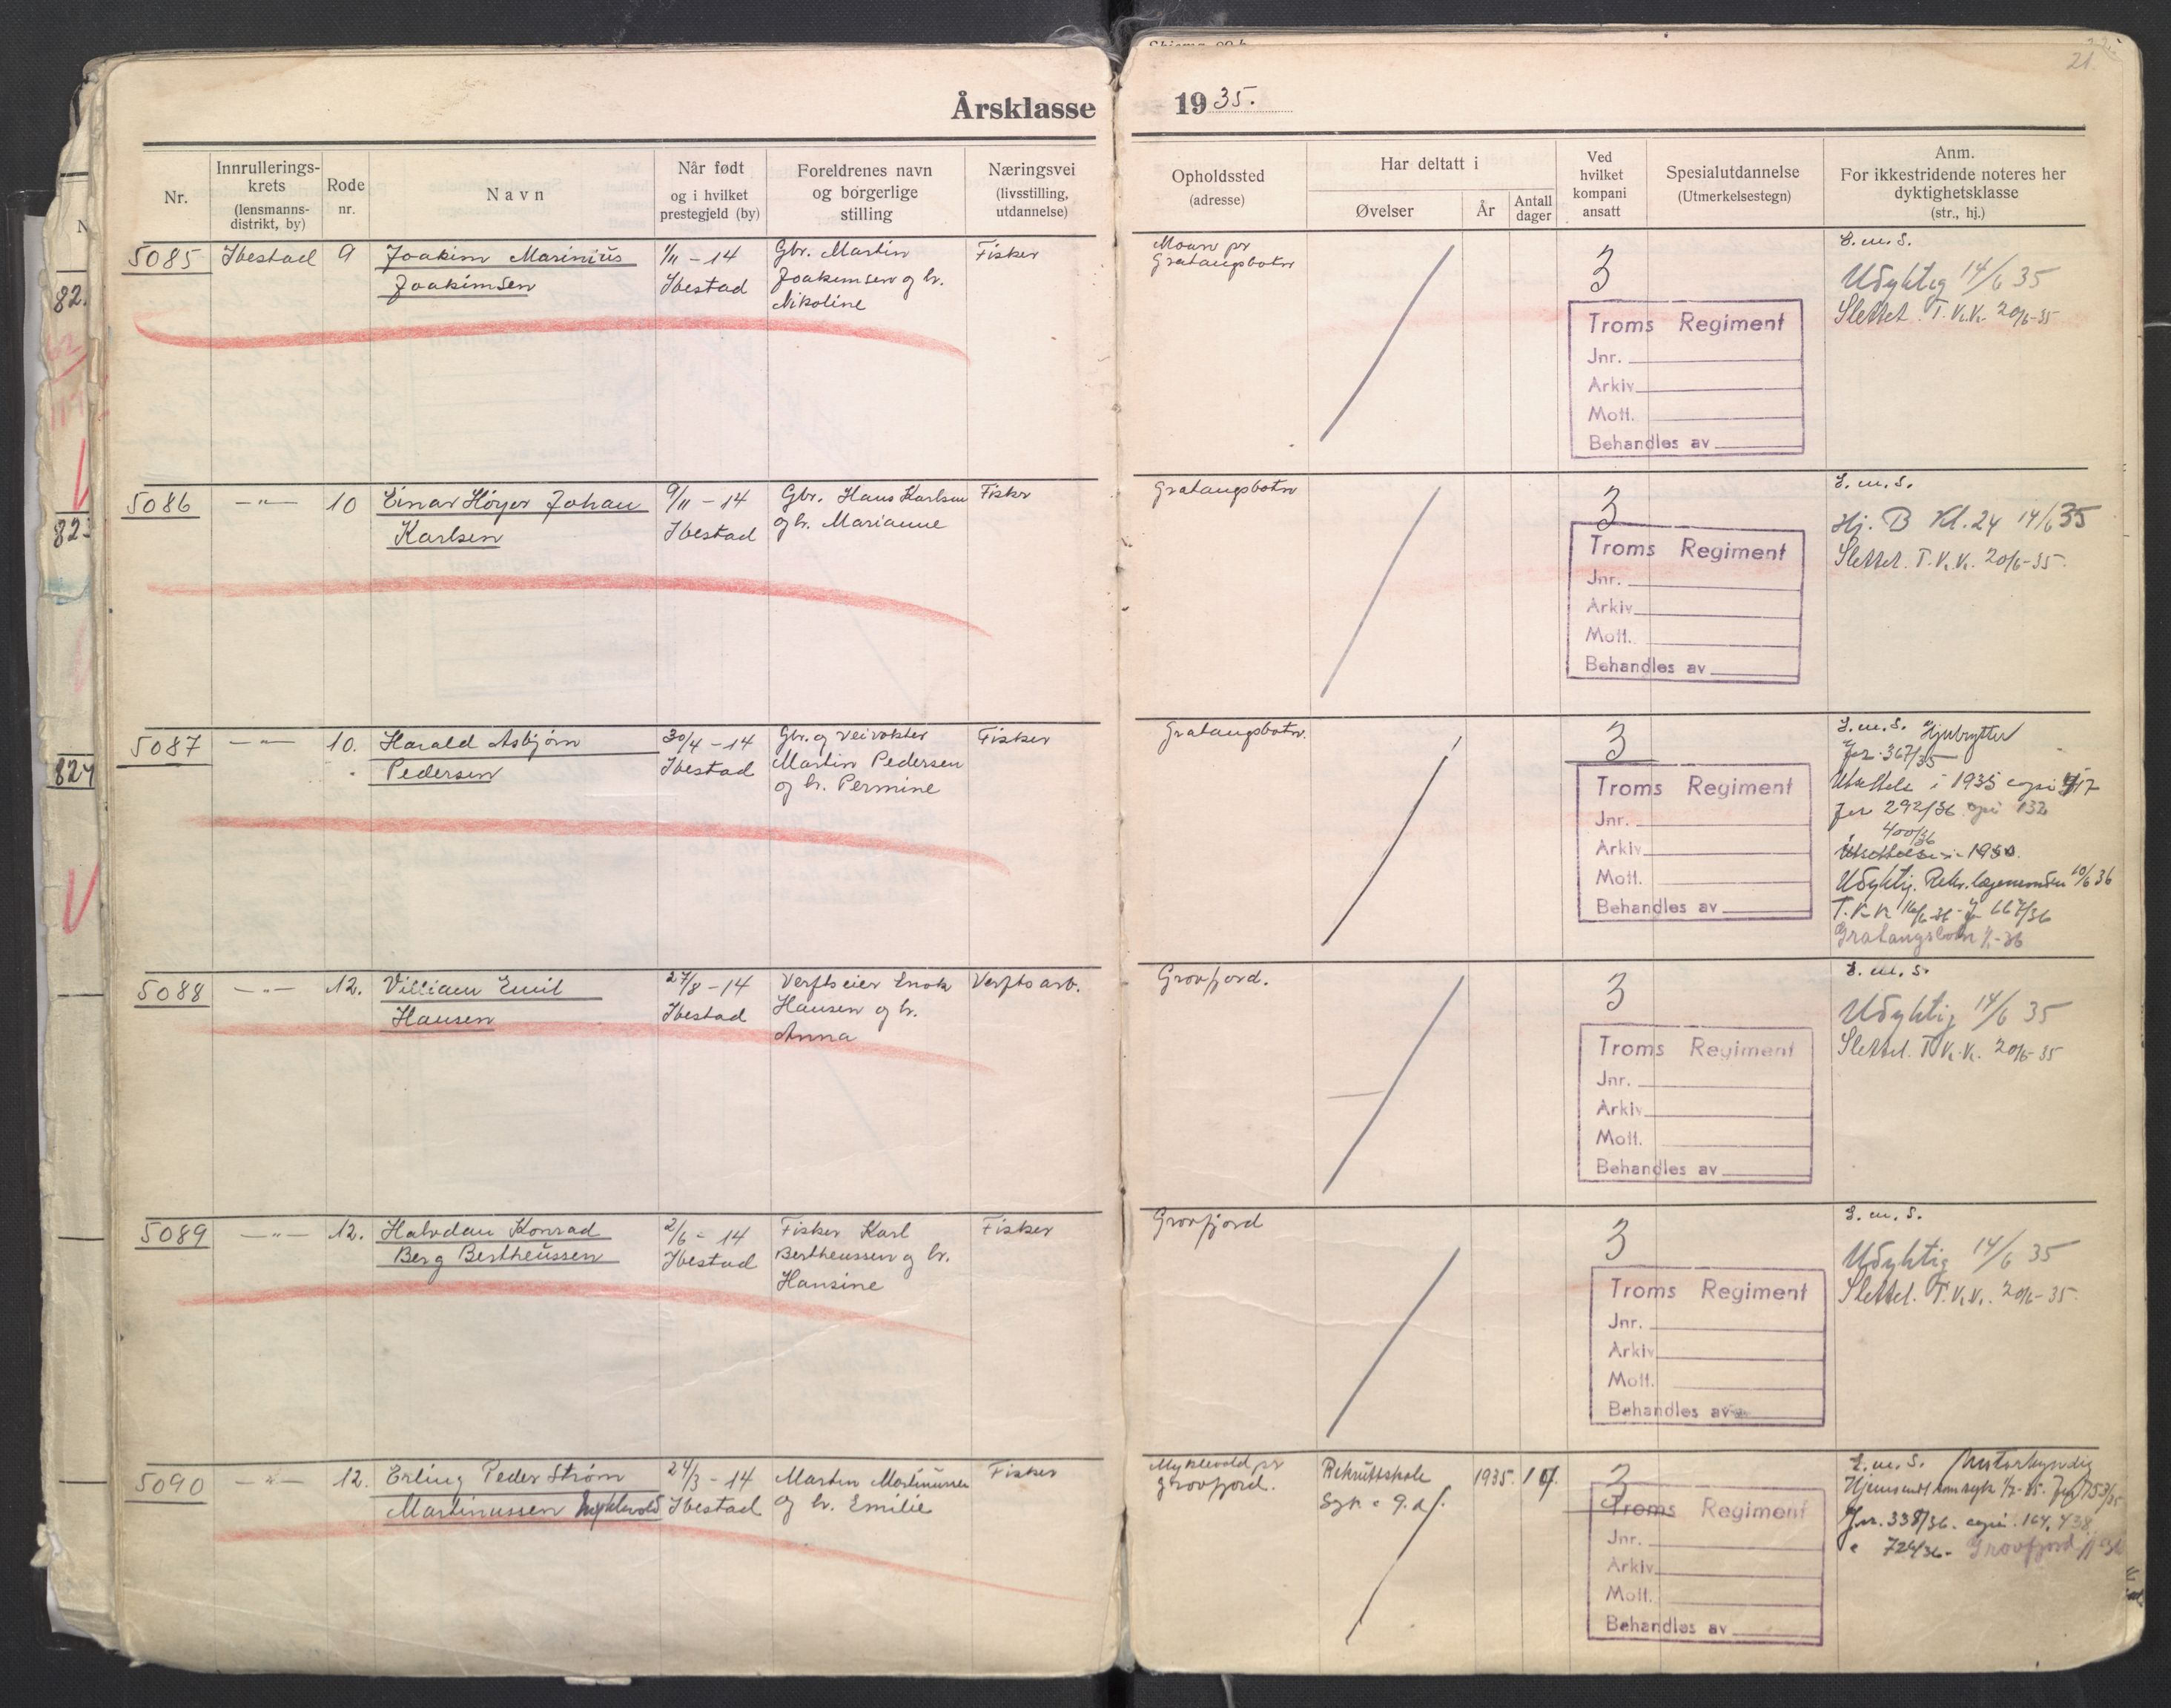 Årsklasse 1935.
21
Nr.
Innrullerings-
krets
(lensmanns-
distrikt, by)
Rode
nr.
Navn
Når født
og i hvilket
prestegjeld (by)
Foreldrenes navn
og borgerlige
stilling
Næringsvei
(livsstilling,
utdannelse)
Opholdssted
(adresse)
Har deltatt i
Øvelser
År
Antall
dager
Ved
hvilket
kompani
ansatt
Spesialutdannelse
(Utmerkelsestegn)
Anm.
For ikkestridende noteres her
dyktighetsklasse
(str., hj.)
5085
Ibestad
9
Joakim Marinius
Joakimsen
1/11 - 14
Ibestad
Gbr. Martin
Joakimsen og h.
Nikoline
Fisker
Moan pr
Gratangsbotn
3
Troms Regiment
Jnr.
Arkiv
Mott.
Behandles av
S.m.S.
Udyktig 14/6 35
Slettet. T.K.K. 20/6-35
5086
-"-
10
Einar Höyer Johan
Karlsen
9/11 - 14
Ibestad
Gbr. Hans Karlsen
og h. Marianne
Fisker
Gratangsbotn
3
Troms Regiment
Jnr.
Arkiv
Mott.
Behandles av
S.m.S.
Hj. B Kl. 24 14/6 35
Slettet. T.K.K. 20/6-35.
5087
-"-
10.
Harald Asbjørn
Pedersen
30/4 - 14
Ibestad
Gbr. og veivokter
Martin Pedersen
og h. Permine
Fisker
Gratangsbotn.
3
Troms Regiment
Jnr.
Arkiv
Mott.
Behandles av
S.m.S.
Jnr. 367/35
i 1935
292/36 132
400/36
Udyktig. Rekr. 10/6 36
T.K.K 16/6-36 667/36
Gratangsbotn
5088
-"-
12.
Villiam Emil
Hansen
27/8 - 14
Ibestad
Verftseier Enok
Hansen og h.
Anna
Verftsarb.
Grovfjord.
3
Troms Regiment
Jnr.
Arkiv
Mott.
Behandles av
S.m.S.
Udyktig 14/6 35
Slettet. T.K.K. 20/6-35
5089
-"-
12.
Halvdan Konrad
Berg Bertheussen
2/6 - 14
Ibestad
Fisker Karl
Bertheussen og h.
Hansine
Fisker
Grovfjord
3
Troms Regiment
Jnr.
Arkiv
Mott.
Behandles av
S.m.S.
Udyktig 14/6 35
Slettet. T.K.K. 20/6-35.
5090
-"-
12.
Erling Peder Strøm
Martinussen Myklevold
24/3 - 14
Ibestad
Martin Martinussen
og h. Emilie
Fisker
Myklevold pr
Grovfjord.
Rekruttskole
Syk
1935.
3
Troms Regiment
Jnr.
Arkiv
Mott.
Behandles av
S.m.S. Motorkyndig
Hjemsendt som syk
Jnr. 338/36. 164, 438
724/36 - Grovfjord